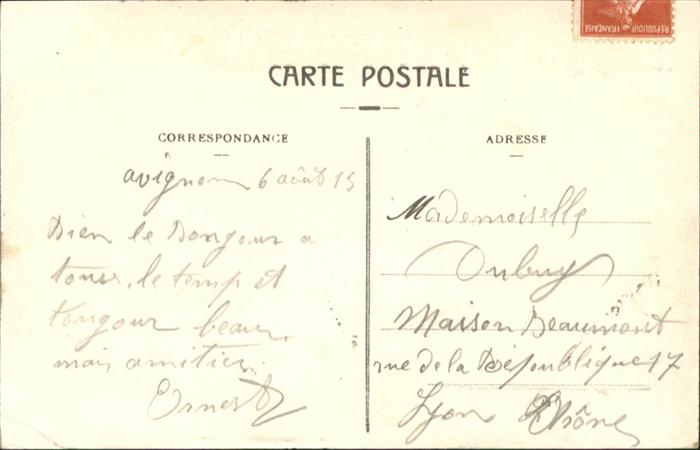 REPUBLIQUE FRANÇAISE
CARTE POSTALE
CORRESPONDANCE
avignon 6 août 15
Bien le Bongour a
tous, le temp et
tougour beau
mais amitier
Ernest
ADRESSE
Mademoiselle
Maison Beaumont
rue de la République 17
Lyon Rhône